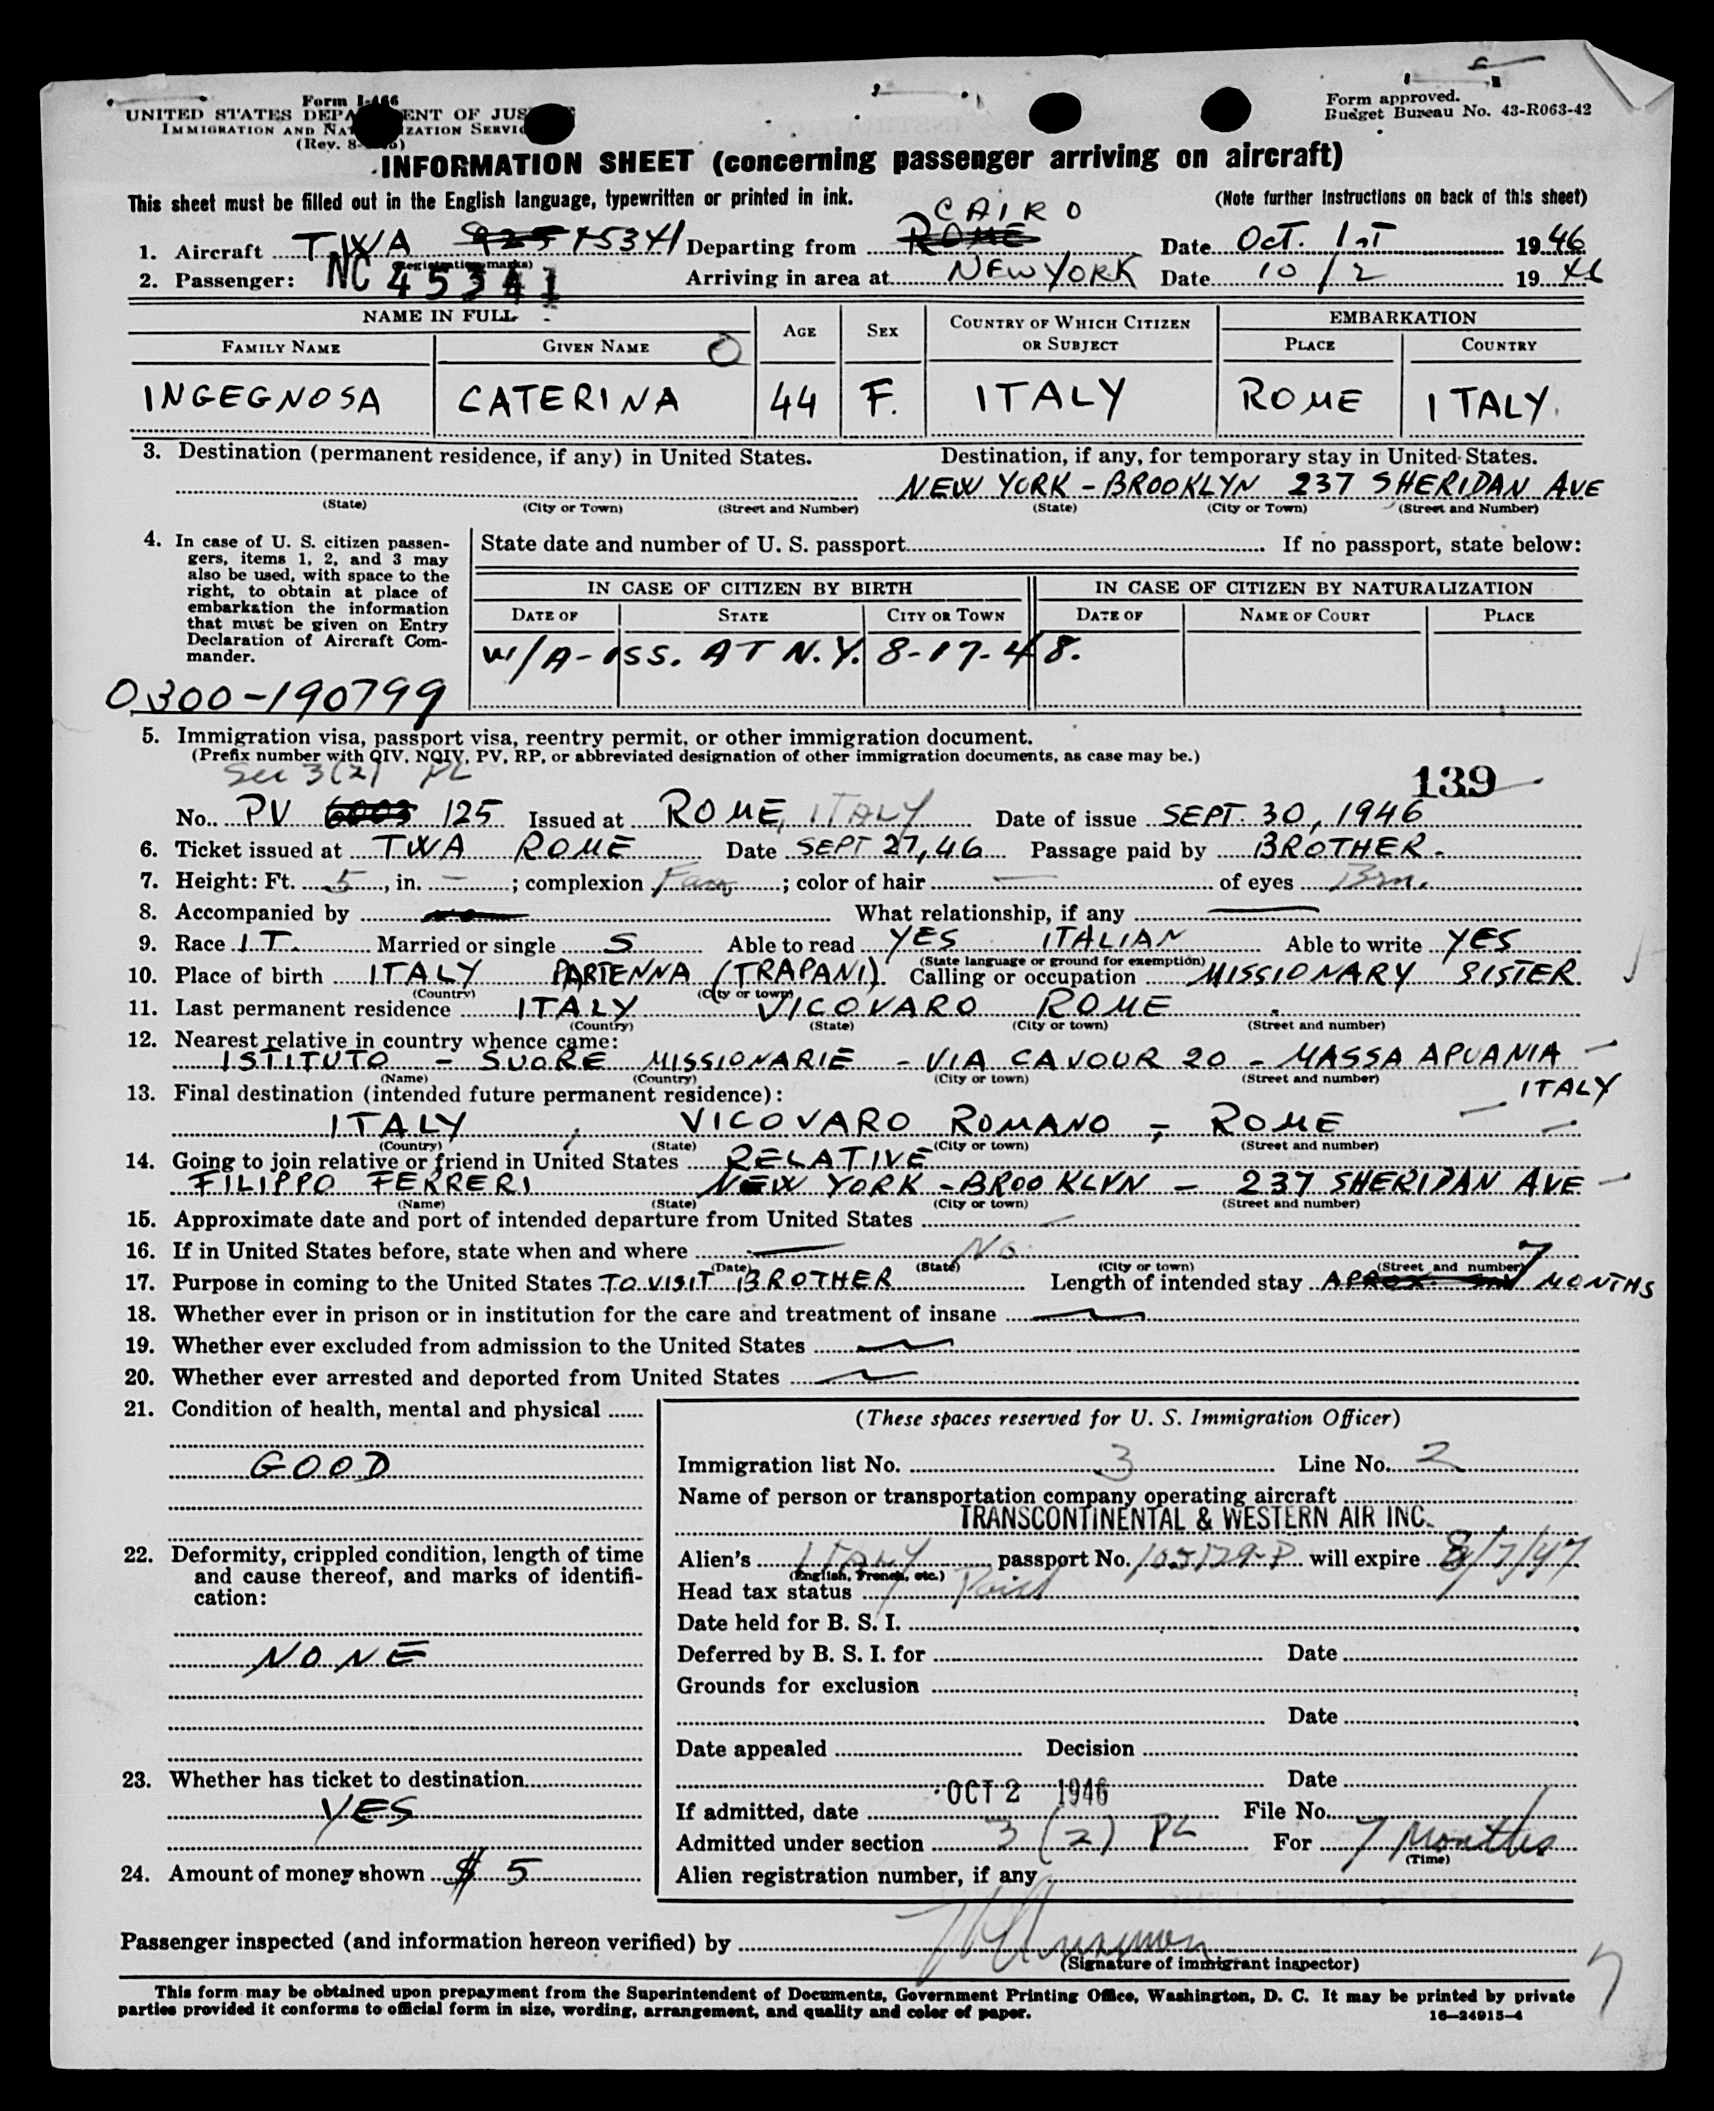 Form I-466
UNITED STATES DEPA ENT OF JUS
IMMIGRATION AND NAT IZATION SERVIC
(Rev. 8- )
Form approved.
Budget Bureau No. 43-R063-42
INFORMATION SHEET (concerning passenger arriving on aircraft)
This sheet must be filled out in the English language, typewritten or printed in ink. (Note further instructions on back of this sheet)
CAIRO
1. Aircraft TWA 45341 Departing from ROME Date OCT. 1ST 1946
(Registration marks)
2. Passenger: NC 45341 Arriving in area at NEW YORK Date 10/2 1946
NAME IN FULL AGE SEX COUNTRY OF WHICH CITIZEN OR SUBJECT EMBARKATION
FAMILY NAME GIVEN NAME PLACE COUNTRY
INGEGNOSA CATERINA 44 F. ITALY ROME ITALY.
3. Destination (permanent residence, if any) in United States. Destination, if any, for temporary stay in United States.
NEW YORK - BROOKLYN 237 SHERIDAN AVE
(State) (City or Town) (Street and Number) (State) (City or Town) (Street and Number)
4. In case of U. S. citizen passengers, items 1, 2, and 3 may also be used, with space to the right, to obtain at place of embarkation the information that must be given on Entry Declaration of Aircraft Commander.
State date and number of U. S. passport If no passport, state below:
IN CASE OF CITIZEN BY BIRTH IN CASE OF CITIZEN BY NATURALIZATION
DATE OF STATE CITY OR TOWN DATE OF NAME OF COURT PLACE
W/A-ISS. AT N.Y. 8-17-48.
0300-190799
5. Immigration visa, passport visa, reentry permit, or other immigration document.
(Prefix number with QIV, NQIV, PV, RP, or abbreviated designation of other immigration documents, as case may be.)
Sec 3(2) PL
139
No. PV 6003 125 Issued at ROME, ITALY Date of issue SEPT. 30, 1946
6. Ticket issued at TWA ROME Date SEPT 27, 46 Passage paid by BROTHER -
7. Height: Ft. 5, in. -; complexion Fair; color of hair - of eyes Brn.
8. Accompanied by What relationship, if any
9. Race IT. Married or single S Able to read YES ITALIAN Able to write YES
(State language or ground for exemption)
10. Place of birth ITALY PARTENNA (TRAPANI) Calling or occupation MISSIONARY SISTER.
(Country) (City or town)
11. Last permanent residence ITALY VICOVARO ROME
(Country) (State) (City or town) (Street and number)
12. Nearest relative in country whence came:
ISTITUTO - SUORE MISSIONARIE - VIA CAVOUR 20 - MASSA APUANIA -
(Name) (Country) (City or town) (Street and number)
ITALY
13. Final destination (intended future permanent residence):
ITALY, VICOVARO ROMANO - ROME
(Country) (State) (City or town) (Street and number)
14. Going to join relative or friend in United States RELATIVE
FILIPPO FERRERI NEW YORK - BROOKLYN - 237 SHERIDAN AVE -
(Name) (State) (City or town) (Street and number)
15. Approximate date and port of intended departure from United States
16. If in United States before, state when and where No
(Date) (State) (City or town) (Street and number)
17. Purpose in coming to the United States TO VISIT BROTHER Length of intended stay APROX. 7 MONTHS
18. Whether ever in prison or in institution for the care and treatment of insane
19. Whether ever excluded from admission to the United States
20. Whether ever arrested and deported from United States
21. Condition of health, mental and physical
GOOD
22. Deformity, crippled condition, length of time and cause thereof, and marks of identification:
NONE
23. Whether has ticket to destination
YES
24. Amount of money shown $ 5
(These spaces reserved for U. S. Immigration Officer)
Immigration list No. 3 Line No. 2
Name of person or transportation company operating aircraft
TRANSCONTINENTAL & WESTERN AIR INC.
Alien's ITALY passport No. 105129-P will expire 8/7/47
(English, French, etc.)
Head tax status Paid
Date held for B. S. I.
Deferred by B. S. I. for Date
Grounds for exclusion
Date
Date appealed Decision
Date
OCT 2 1946
If admitted, date File No.
Admitted under section 3(2) PL For 7 Months
(Time)
Alien registration number, if any
Passenger inspected (and information hereon verified) by
(Signature of immigrant inspector)
7
This form may be obtained upon prepayment from the Superintendent of Documents, Government Printing Office, Washington, D. C. It may be printed by private
parties provided it conforms to official form in size, wording, arrangement, and quality and color of paper.
16-24915-4